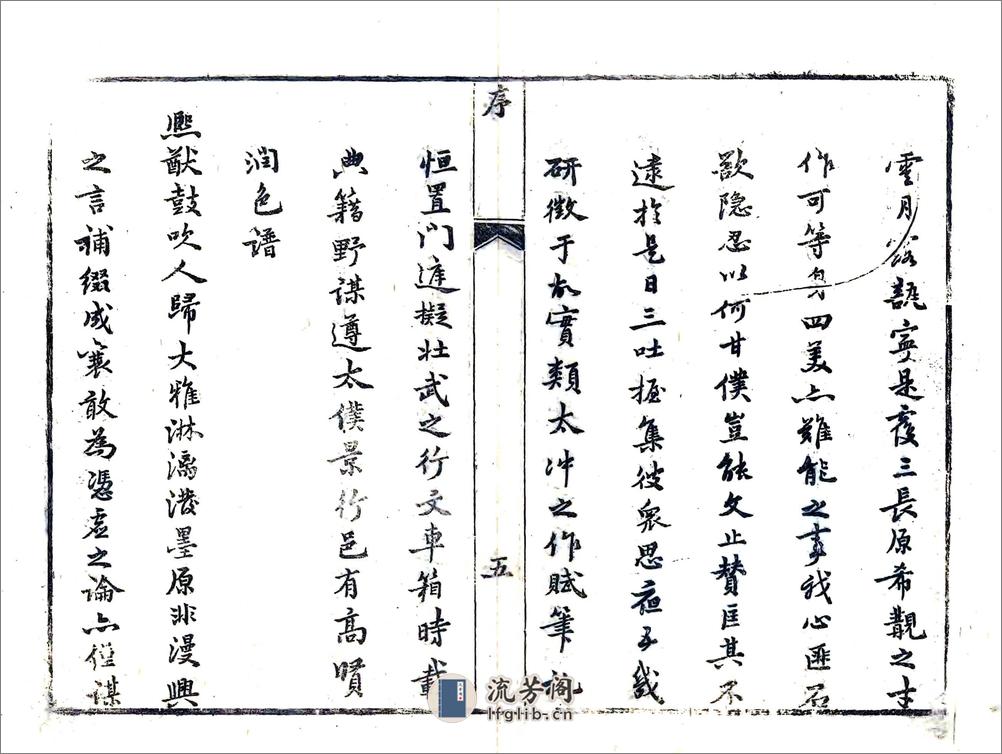 雪月露語寧是處三長原希觀之古
作可等身四美亦難能之事我心匪石
欲隐忍以何甘僕豈能文止賛臣其不
逮於是日三吐握集彼衆思夜子幾
研徵于故實類太冲之作賦筆札
恒置門遮擬壮武之行文車箱時載
典籍野謀遵太僕景行邑有高噴
潤色譜
熙猷鼓吹人歸大雅淋漓潑墨原非漫興
之言補綴成襄敢為憑虚之論亦僅謀
序
五
流芳阁
lfglib.cn